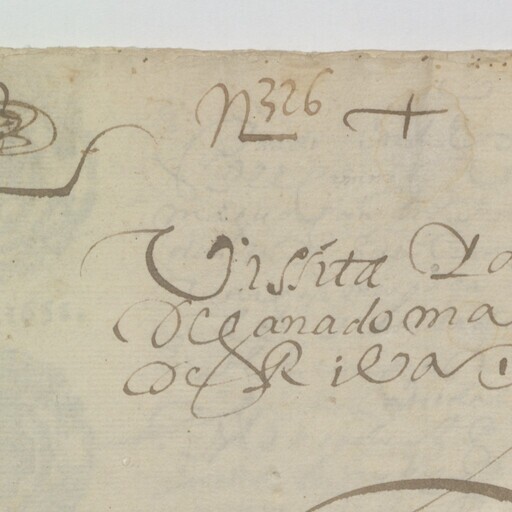 N 326 +
Vissita
de Ganadoma
de Riba